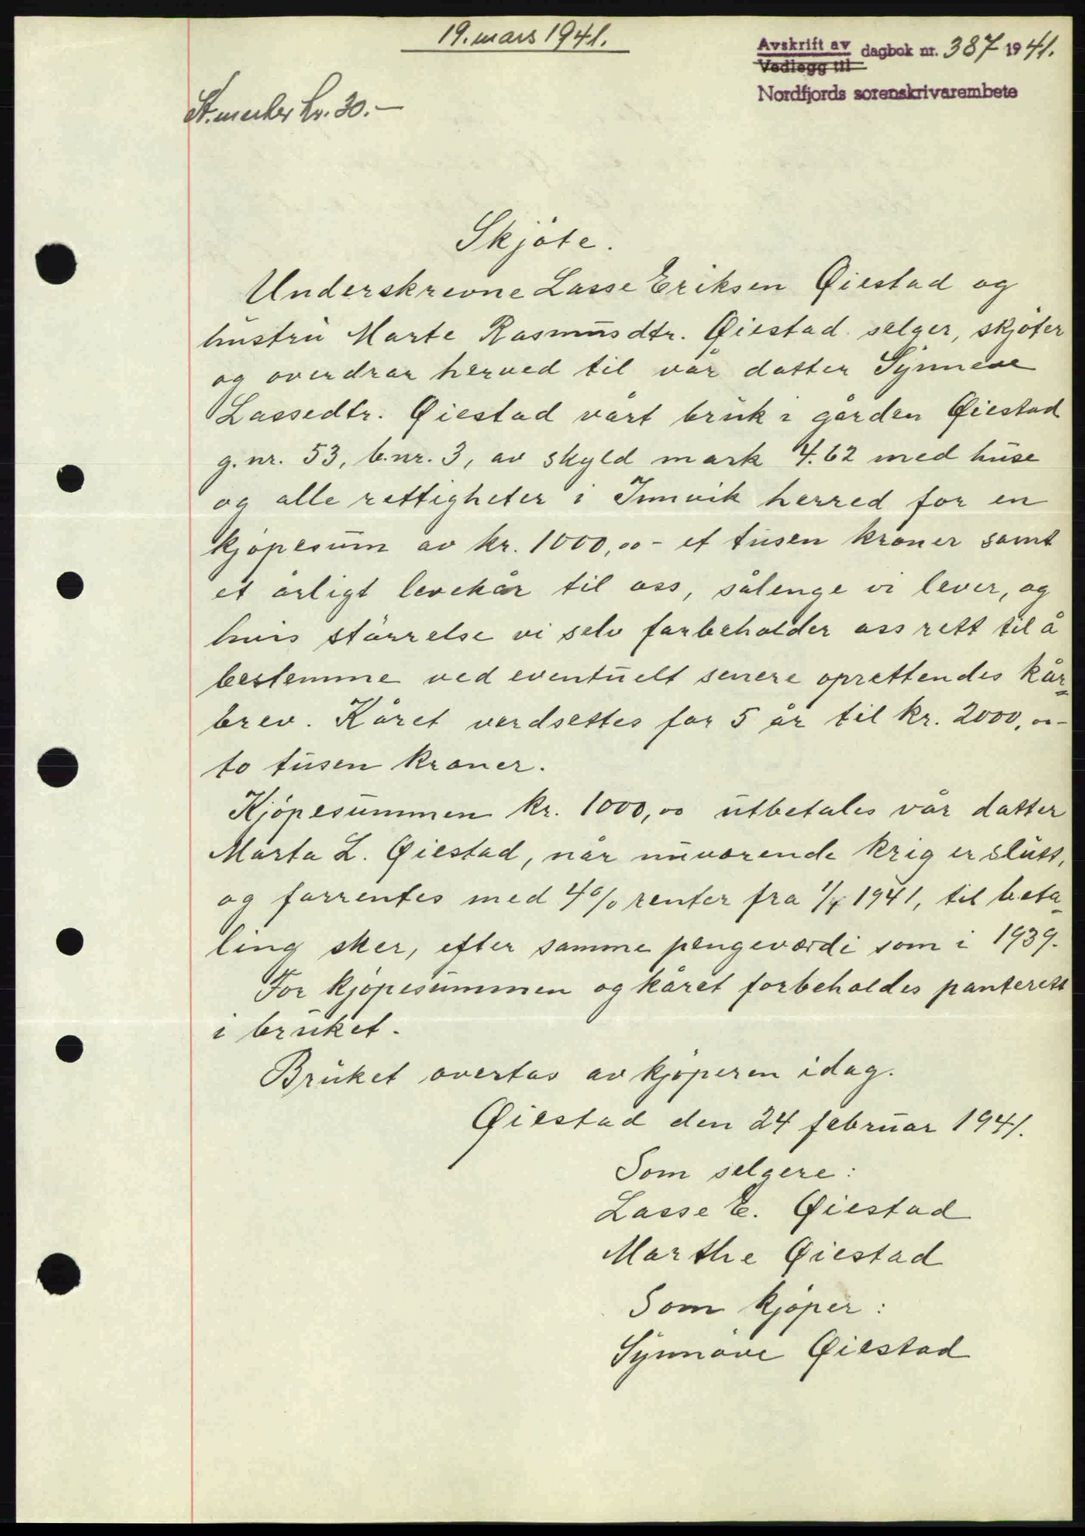 19. mars 1941.
Avskrift av
Vedlegg til
dagbok nr. 387 1941.
Nordfjords sorenskrivarembete
St.merker kr. 30.-
Skjöte.
Underskrevne Lasse Eriksen Øiestad og
hustru Marte Rasmusdtr. Øiestad selger, skjøter
og overdrar herved til vår datter Synneve
Lassedtr. Øiestad vårt bruk i gården Øiestad
g.nr. 53, b.nr. 3, av skyld mark 4.62 med huse
og alle rettigheter i Innvik herred for en
kjøpesum av kr. 1000,00 - et tusen kroner samt
et årligt levekår til oss, sålenge vi lever, og
hvis störrelse vi selv forbeholder oss rett til å
bestemme ved eventuelt senere oprettendes kår=
brev. Kåret verdsettes for 5 år til kr. 2000,00-
to tusen kroner.
Kjöpesummen kr. 1000,00 utbetales vår datter
Marta L. Øiestad, når nuværende krig er slutt,
og forrentes med 4% renter fra 1/4 1941, til beta=
ling sker, efter samme pengeværdi som i 1939.
For kjöpesummen og kåret forbeholdes panterett
i bruket.
Bruket overtas av kjöperen idag.
Øiestad den 24 februar 1941.
Som selgere:
Lasse E. Øiestad
Marthe Øiestad
Som kjøper:
Synnöve Øiestad